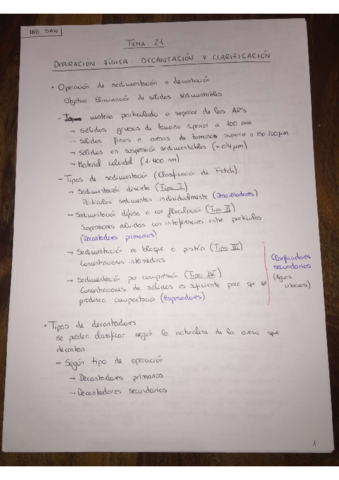 ING SAN
TEMA 21
DEPURACIÓN FÍSICA: DECANTACIÓN Y CLARIFICACIÓN
• Operación de sedimentación o decantación
Objetivo: Eliminación de sólidos sedimentables
- materia particulada a separar de las ARs
→ Sólidos gruesos de tamaño superior a
→ Sólidos finos o arenas de tamaños superior a 150-200 μm
→ Sólidos en suspensión sedimentables
→ Material coloidal
- Tipos de sedimentación (Clasificación de Fitch)
→ Sedimentación discreta (Tipo I)
Partículas sedimentan individualmente (Desarenadores)
→ Sedimentación difusa o con floculación (Tipo II)
Suspensiones diluidas con interferencias entre partículas
(Decantadores primarios)
→ Sedimentación en bloque o pistón (Tipo III)
Concentraciones intermedias
→ Sedimentación por compresión (Tipo IV)
Concentraciones de sólidos es suficiente para que se
produzca compactación (Espesadores)
Clarificadores
secundarios
• Tipos de decantadores
Se pueden clasificar según la naturaleza de la que
decantan.
- Según tipo de operación
→ Decantadores primarios
→ Decantadores secundarios
1